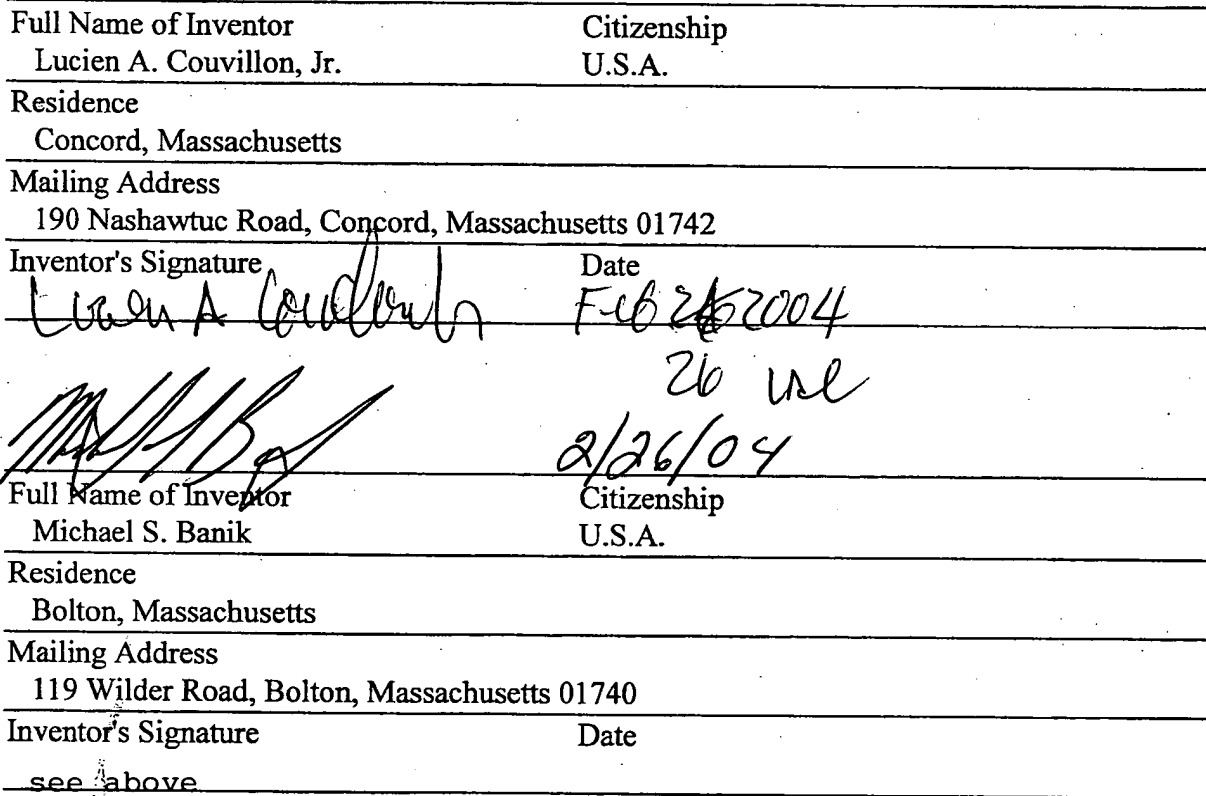 Full Name of Inventor Citizenship
Lucien A. Couvillon, Jr. U.S.A.
Residence
Concord, Massachusetts
Mailing Address
190 Nashawtuc Road, Concord, Massachusetts 01742
Inventor's Signature Date
Lucien A Couvillon Jr Feb 2004
26 lac
2/26/04
Full Name of Inventor Citizenship
Michael S. Banik U.S.A.
Residence
Bolton, Massachusetts
Mailing Address
119 Wilder Road, Bolton, Massachusetts 01740
Inventor's Signature Date
see above